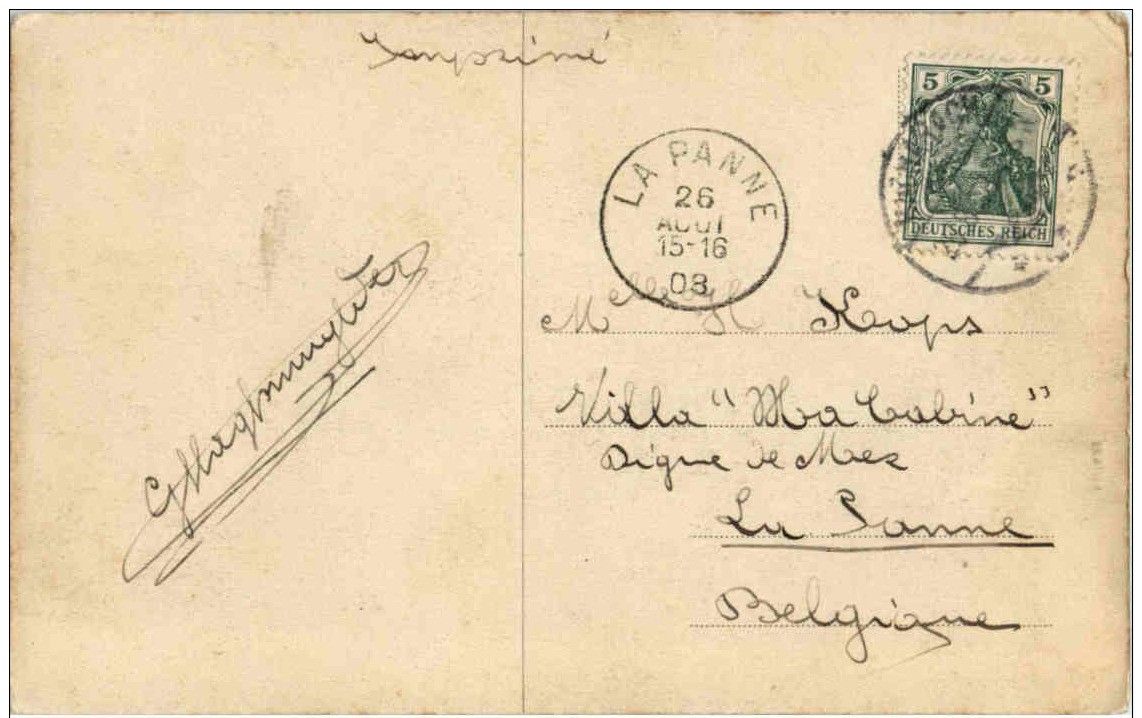 Imprimé
5 5
DEUTSCHES REICH
LA PANNE
26
AOUT
15-16
08
H Kops
Villa "Ma Cabine"
Digue de Mer
La Panne
Belgique